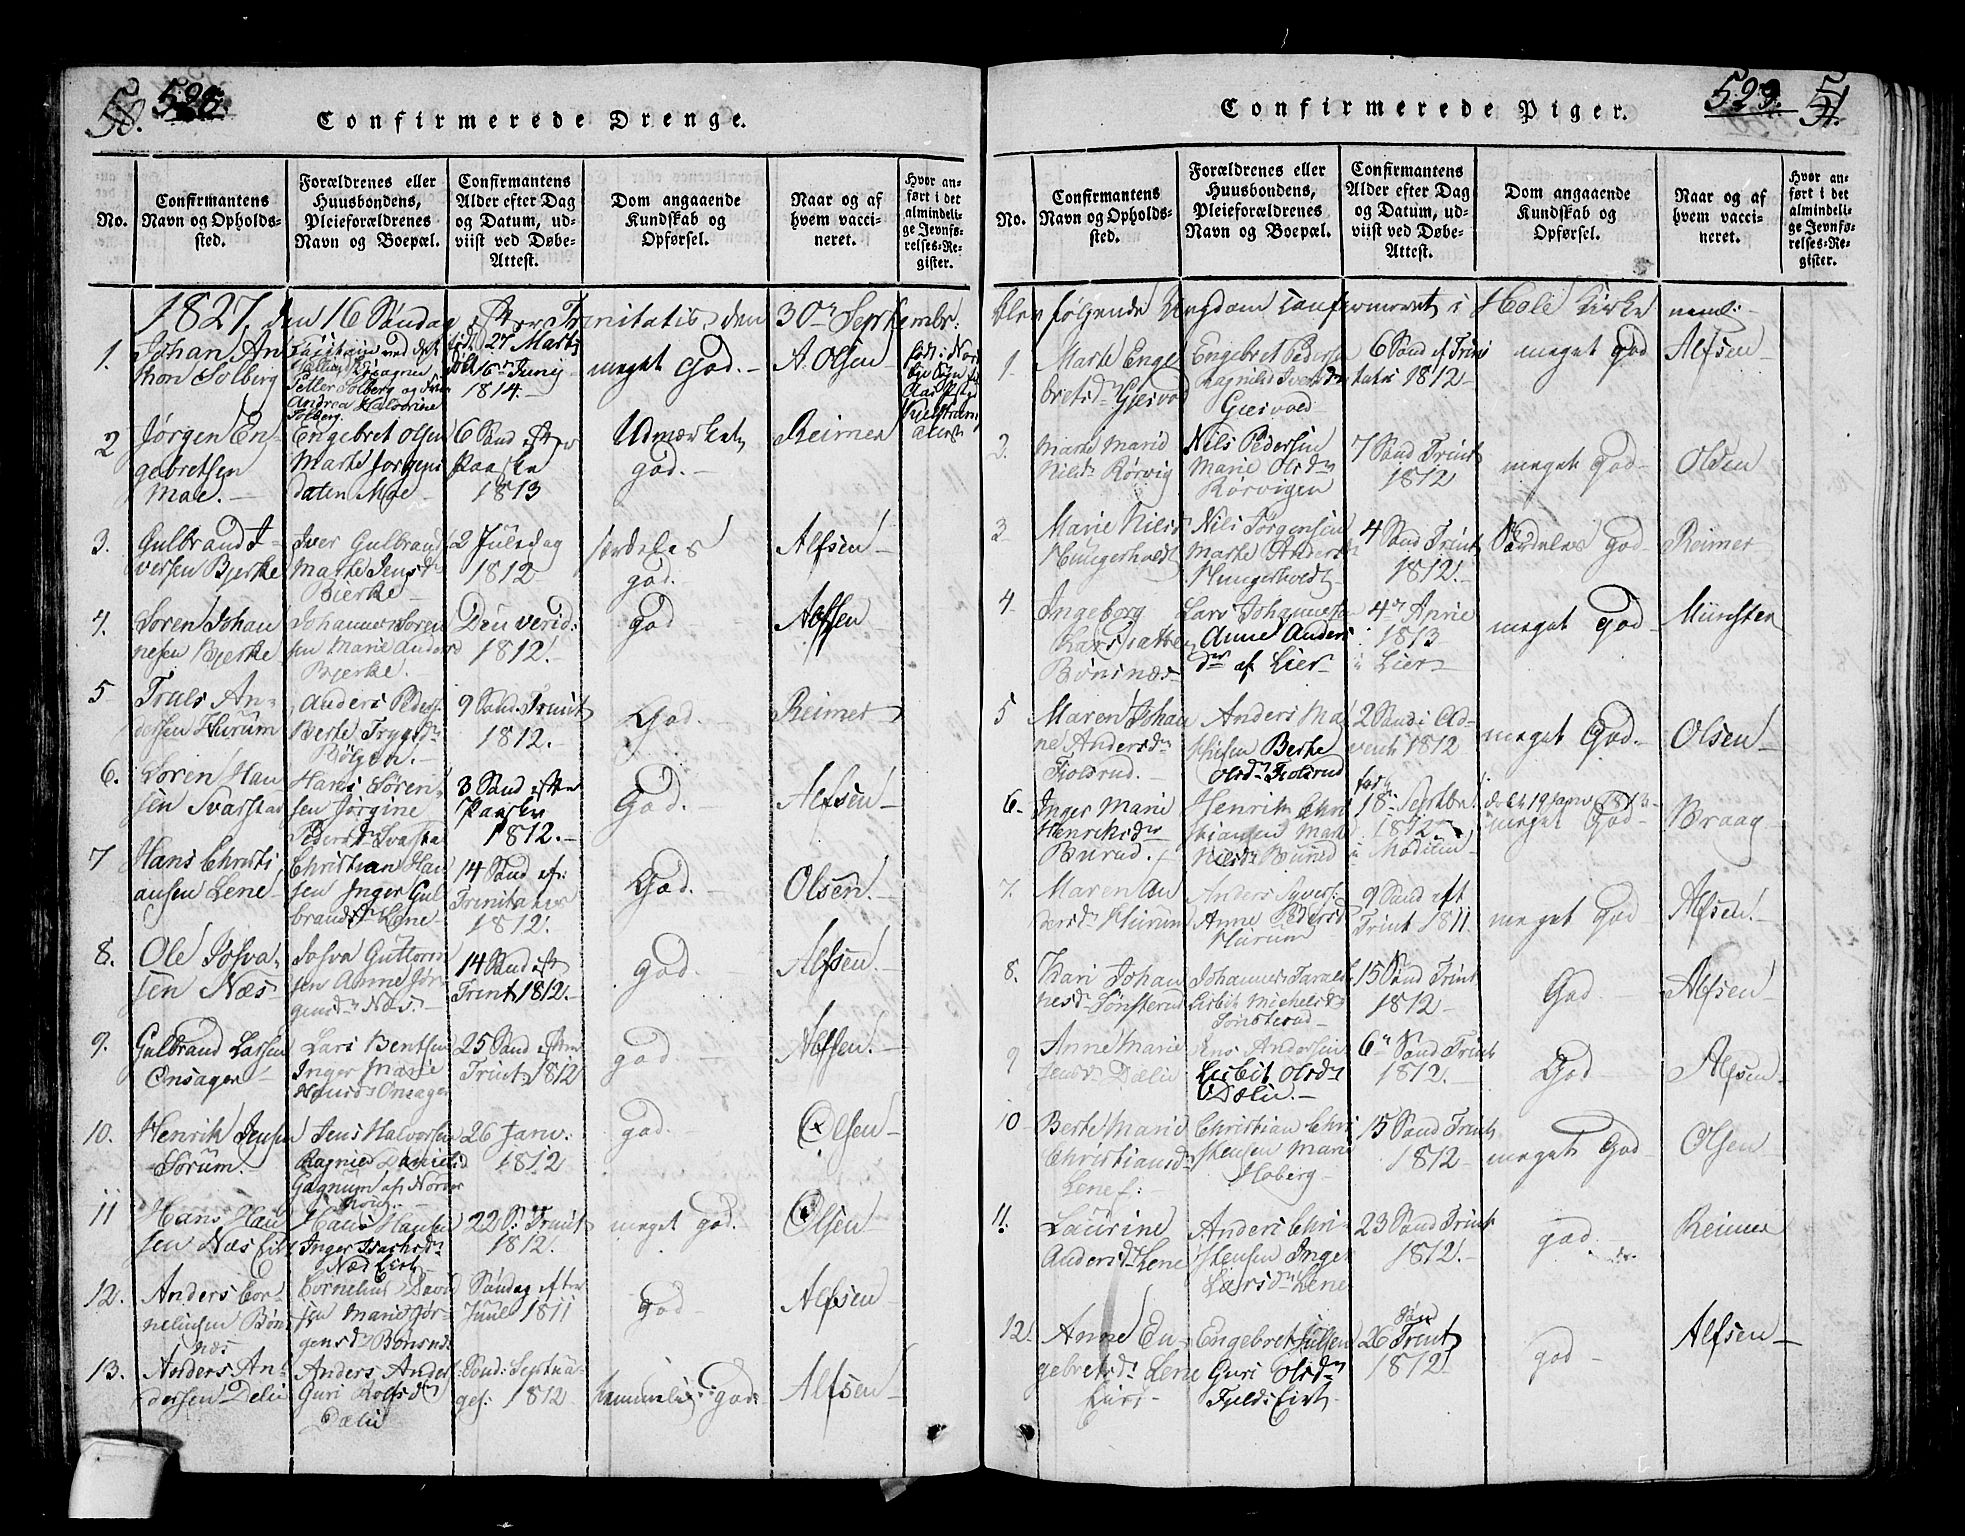 50. 528.
Confirmerede Drenge.
No.
Confirmantens
Navn og Opholds-
sted.
Forældrenes eller
Huusbondens,
Pleieforældrenes
Navn og Boepæl.
Confirmantens
Alder efter Dag
og Datum, ud-
viist ved Døbe-
Attest.
Dom angaaende
Kundskab og
Opførsel.
Naar og af
hvem vacci-
neret.
Hvor an-
ført i det
almindeli-
ge Jevnfø-
relses-Re-
gister.
1827 den 16 Søndag efter Trinitatis den 30 Septembr:
1.
Johan An
thon Solberg
Petter Solberg og
Andrea Halvorine
Solberg.
27 Marts
16 Junij
1814.
meget God.
A. Olsen
2
Jørgen En-
gebretsen
Moe.
Engebret Olsen
Marte Jørgens
daten Moe
6 Sønd efter
Paaske
1813
Udmærket
god.
Reimer
3.
Gulbrand I-
versen Bjerke
Iver Gulbrand
Marte Jensdr
Bjerke
2 Juledag
1812
særdeles
god.
Alfsen
4.
Søren Johan
nesen Bjerke
Johannes Søren
sen Marie Anders
Bjerke
Dñi verid:
1812.
God
Alfsen
5
Truls An-
dersen Hurum
Anders Peders.
Berte Trygsdr
9 Sønd. Trinit
1812.
God.
Reimer
6.
Søren Han
sen Svarstad
Hans Søren
sen Jørgine
Pedersdr Svarsta
3 Sønd efter
Paaske
1812.
God.
Alfsen
7
Hans Christi
ansen Lene
Christian Han
sen Inger Gul
brandsdr Lene
14 Sønd ef:
Trinitates
1812.
God.
Olsen.
8.
Ole Josva
sen Næs
Josva Guttorm
sen Anne Jør
gensdr Næs.
14 Sønd eft
Trinit 1812.
god.
Alfsen.
9.
Gulbrand Larsen
Onsager
Lars Bentsen
Inger Marie
Onsager
25 Sønd efter
Trinit 1812
god
Alfsen.
10.
Henrik Jensen
Sørum.
Jens Halvorsen
Ragnild Daniels
Gagnum af Norder
26 Janv:
1812
god.
Olsen
11
Hans Han
sen Næs Eiet
Hans Hansen
Inger Isachsdr
Næs Eiet
22 S. Trinit
1812.
meget god.
Olsen
12.
Anders Cor-
neliusen Bøn
næs
Cornelius David
sen Marie Jør-
gensdr Bønsnæs
Søndag efter
Juul 1811
God
Alfsen
13.
Anders An-
dersen Dælie
Anders Anders
Guri Rolfsdr
Dælie
Sønd: Septua-
ges: 1812
temmelig god:
Alfsen
529. 51.
Confirmerede Piger.
No.
Confirmantens
Navn og Opholds-
sted.
Forældrenes eller
Huusbondens,
Pleieforældrenes
Navn og Boepæl.
Confirmantens
Alder efter Dag
og Datum, ud-
viist ved Døbe-
Attest.
Dom angaaende
Kundskab og
Opførsel.
Naar og af
hvem vacci-
neret.
Hvor an-
ført i det
almindeli-
ge Jevnfø-
relses-Re-
gister.
blev følgende Ungdom confirmeret i Hole Kirke neml:
1.
Marte Enge
bretsdr Gjesvod
Engebret Pedersen
Ragnild Iversdr
Giesvold
6 Sønd ef Trini
tatis 1812
meget God
Alfsen
2.
Marte Marie
Nilsdr Rørvig
Nils Pedersen
Marie Olsdr
Rørvigen
7 Sønd Trinit
1812
meget God
Olsen
3
Marie Nilsdr
Hungerholdt
Nils Jørgensen
Marte Andersdr
Hungerholdt
4 Sønd Trinit
1812.
Særdeles God
Reimer
4
Ingeborg
Larsdatter
Bønsnæs
Lars Johannesen
Anne Anders
dr af Lier
4 Aprie
1813
i Lier
meget God
Münster
5
Maren Johan
ne Andersdr
Fjoldsrud.
Anders Ma
thisen Berte
Olsdr Fjoldsrud
2 Sønd i Ad-
vent 1812
meget God.
Olsen
6.
Inger Marie
Henriksdr
Burud.
Henrik Chri
stiansen Marte
Nilsdr Burud
18 Septbr.
1812
i Modum
døbt 19 Janv 1813
meget God
Braag
7.
Maren An
dersdr Hurum
Anders Syvers:
Anne Pedersd
Hurum
9 Sønd eft
Trinit 1811.
meget God
Alfsen.
8.
Kari Johan
nesdr Sønsterud
Johannes Taralds
Lisbet Michelsdr
Sønsterud
15 Sønd Trinit
1812
God
Alfsen
9
Anne Marie
Jensdr Dælie
Jens Andersen
Lisbet Olsdr
Dælie.
6 Sønd Trinit
1812.
God
Alfsen
10
Berte Marie
Christiansdr
Lene
Christian Chri
stensen Marie
Hoberg
15 Sønd Trinit
1812
meget God
Olsen
11.
Laurine
Andersdr Lene
Anders Chri-
stensen Inger
Larsdr Lene
23 Sønd Trinit
1812.
god.
Reimer
12.
Anne En-
gebretsdr Lene
Eiet
Engebret
Guri Olsdr
Fjelds Eiet
26 Sønd Trinit
1812
god
Alfsen